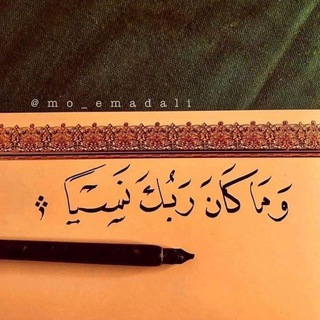 @mo_emadali
وَمَا كَانَ رَبُّكَ نَسِيًّا